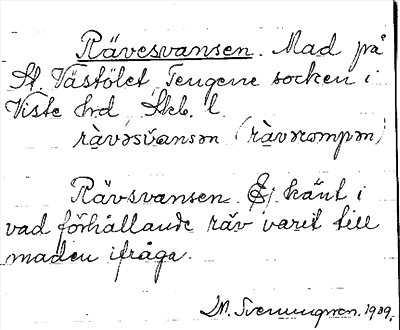 Rävesvansen. Mad på
St. Västölet, Tengene socken i
Viste hrd, Skb. l.
rävəsvansən (rävərompən)
Rävsvansen. Ej känt i
vad förhållande räv varit till
maden ifråga.
M. Svenungsson. 1909.